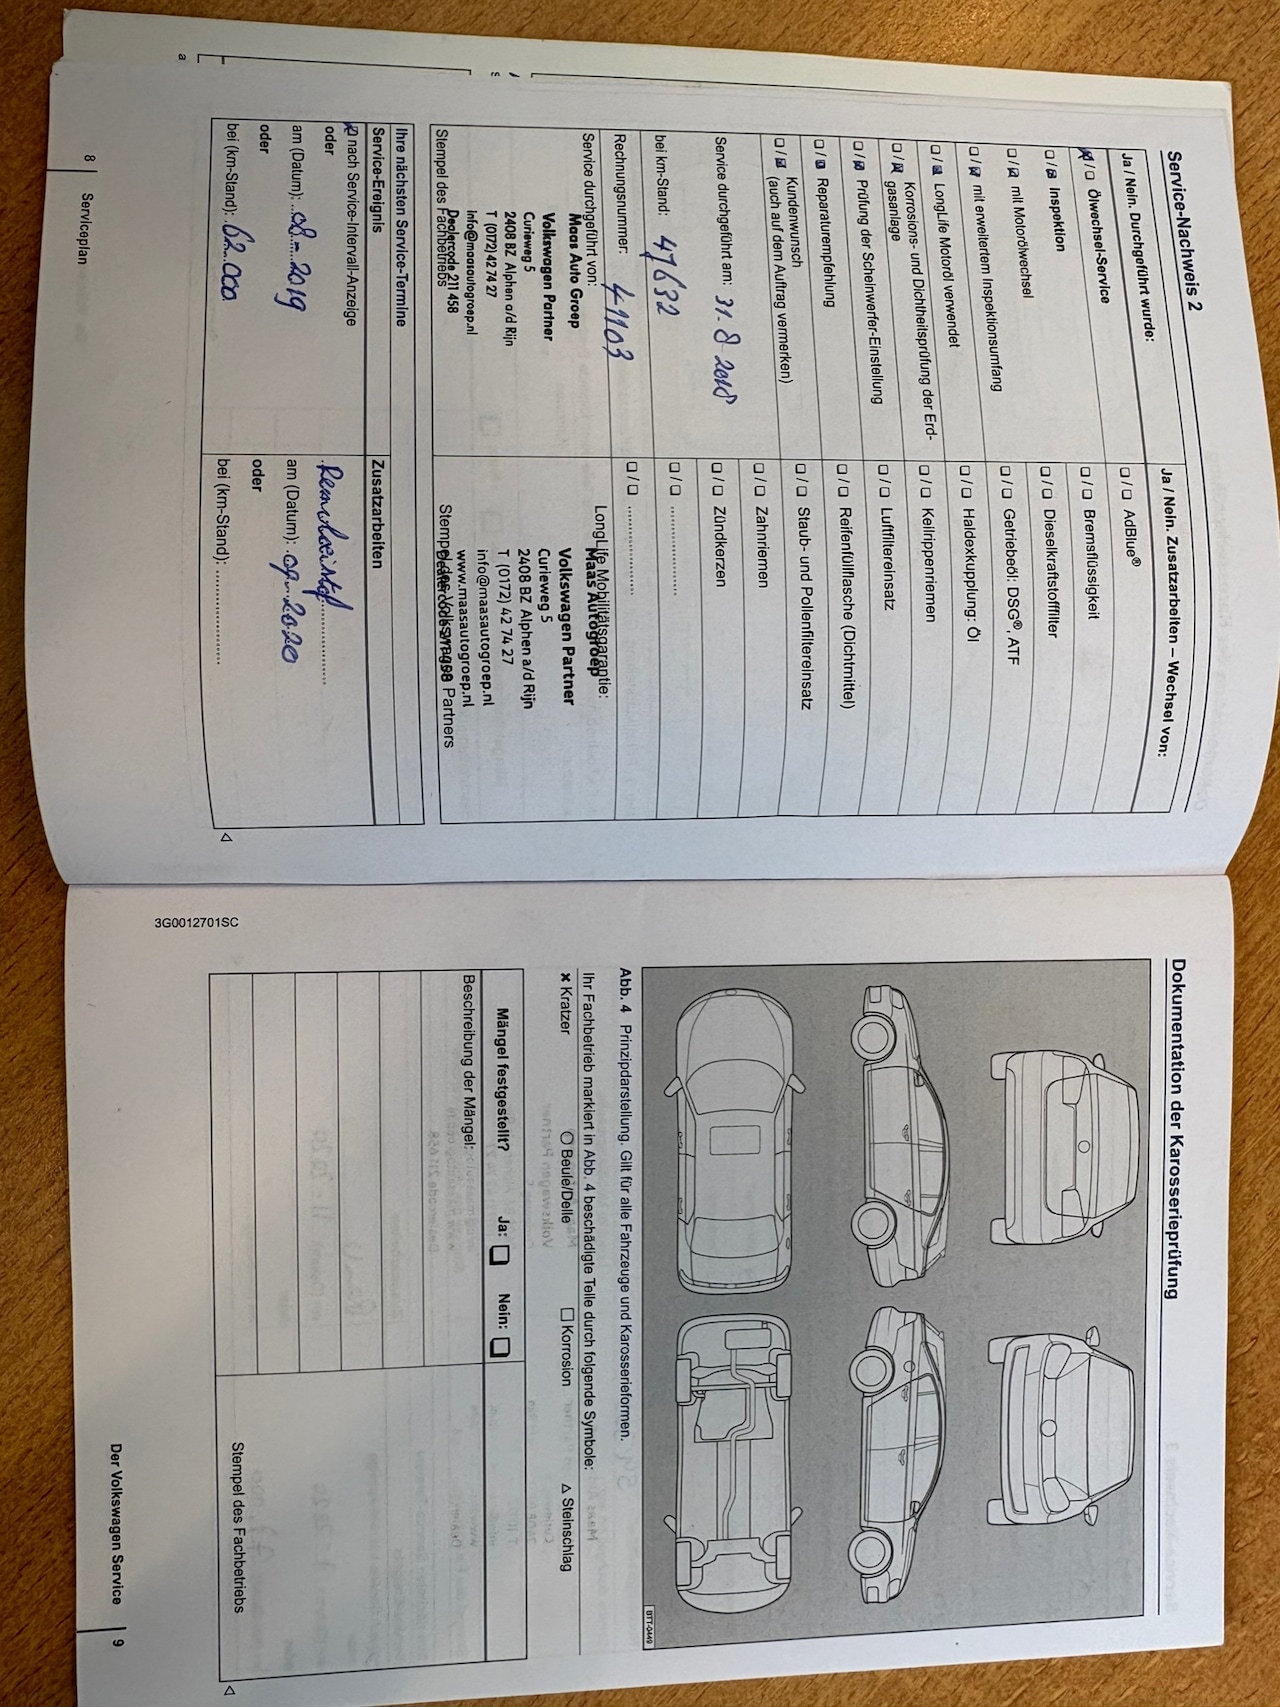 Service-Nachweis 2
Ja / Nein. Durchgeführt wurde:
Ölwechsel-Service
Inspektion
mit Motorölwechsel
mit erweitertem Inspektionsumfang
LongLife Motoröl verwendet
Korrosions- und Dichtheitsprüfung der Erd-
gasanlage
Prüfung der Scheinwerfer-Einstellung
Reparaturempfehlung
Kundenwunsch
(auch auf dem Auftrag vermerken)
Service durchgeführt am: 31-8 2018
bei km-Stand: 47632
Rechnungsnummer: 41103
Service durchgeführt von:
Maas Auto Groep
Volkswagen Partner
Curieweg 5
2408 BZ Alphen a/d Rijn
T (0172) 42 74 27
Info@maasautogroep.nl
Dealercode 211 458
Stempel des Fachbetriebs
Ja / Nein. Zusatzarbeiten – Wechsel von:
AdBlue®
Bremsflüssigkeit
Dieselkraftstofffilter
Getriebeöl: DSG®, ATF
Haldexkupplung: Öl
Keilrippenriemen
Luftfiltereinsatz
Reifenfüllflasche (Dichtmittel)
Staub- und Pollenfiltereinsatz
Zahnriemen
Zündkerzen
LongLife Mobilitätsgarantie:
Maas Autogroep
Volkswagen Partner
Curieweg 5
2408 BZ Alphen a/d Rijn
T (0172) 42 74 27
info@maasautogroep.nl
www.maasautogroep.nl
Stempel des Volkswagen Partners
Ihre nächsten Service-Termine
Service-Ereignis
nach Service-Intervall-Anzeige
oder
am (Datum): 08 - 2019
oder
bei (km-Stand): 62.000
Zusatzarbeiten
Remvloeistof
am (Datum): 09 - 2020
oder
bei (km-Stand):
8 Serviceplan
Dokumentation der Karosserieprüfung
BTT-0449
Abb. 4 Prinzipdarstellung. Gilt für alle Fahrzeuge und Karosserieformen.
Ihr Fachbetrieb markiert in Abb. 4 beschädigte Teile durch folgende Symbole:
× Kratzer ○ Beule/Delle □ Korrosion △ Steinschlag
Mängel festgestellt? Ja: Nein:
Beschreibung der Mängel:
Stempel des Fachbetriebs
3G0012701SC
Der Volkswagen Service 9